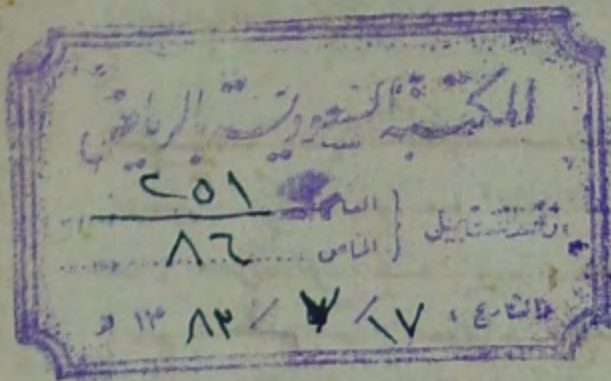 المكتبة السعودية بالرياض
رقم التسجيل { العام ٢٥١
الخاص ٨٦
التاريخ : ١٧ / ٧ / ١٣٨٣ هـ